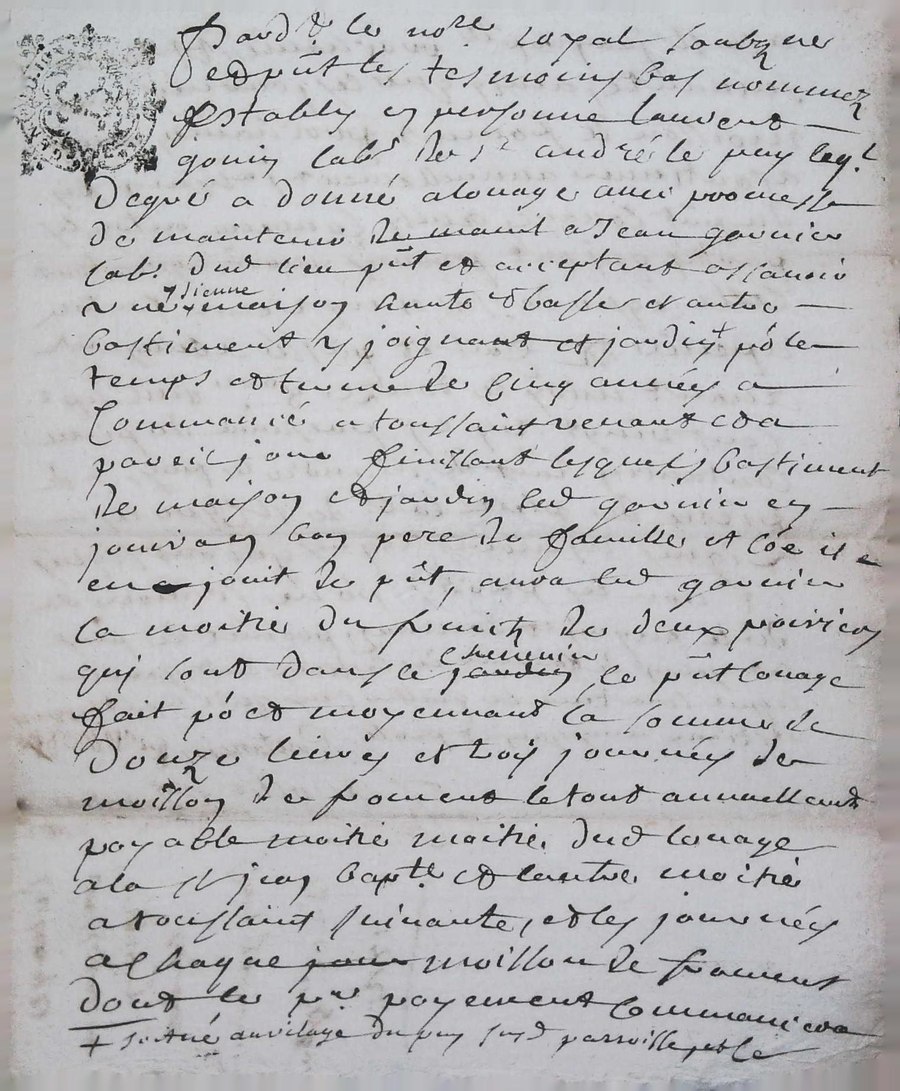 Pard.t le no.re royal soubzne
et p̃nt les tesmoins bas nommez
Estably en personne laurent
gouin lab.r de s.t andré le puy leq.l
de gré a donné a louage avec promesse
de maintenir a Jean garnier
lab.r dud lieu p̃nt et acceptant assavoir
une sienne maison haute & basse et autre
bastiment y joignant et jardin + p̃ le
temps et terme de cinq années a
Commancé a toussaint venant et a
pareil jour finissant lesquels bastiment
de maison et jardin led garnier en
jouira en bon pere de famille et cõe il
en jouit de p̃nt, aura led garnier
la moitié du fruict de deux poiriers
qui sont dans le jardin chenevier, le p̃nt louage
fait p̃ et moyennant la somme de
Douze livres et trois journées de
moisson de froment le tout annuellem.t
payable moitié moitié dud louage
a la s.t jean bapt.e et l'autre moitié
a toussaint suivante, et les journées
a chaque jour moisson de froment
dont le p.er payement commancera
+ scitué au vilage du puy susd parroisse, et le